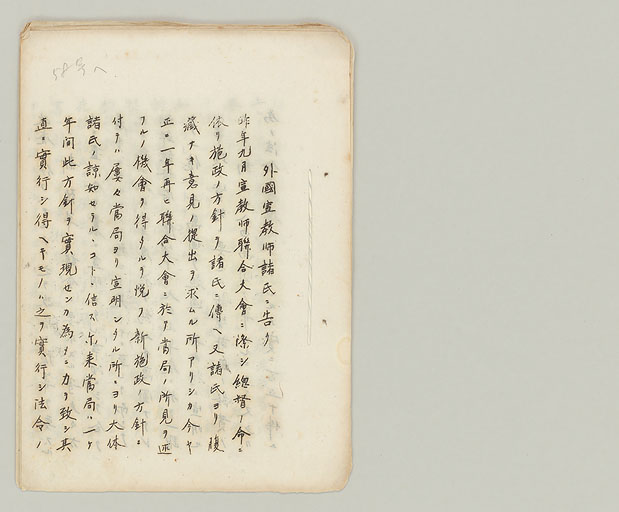 58号へ
外國宣敎師諸氏ニ告ク
昨年九月宣敎師聯合大會ニ際シ總督ノ命ニ
依リ施政ノ方針ヲ諸氏ニ傳ヘ又諸氏ヨリ腹
藏ナキ意見ノ提出ヲ求ムル所アリシカ今ヤ
正ニ一年再ヒ聯合大會ニ於テ當局ノ所見ヲ述
フルノ機會ヲ得タルヲ悅フ新施政ノ方針ニ
付テハ屢々當局ヨリ宣明シタル所ニヨリ大体
諸氏ノ諒知セラルヽコトヽ信ス尓来當局ハ一ケ
年间此方針ヲ實現センカ為メニカヲ致シ其
直ニ實行シ得ヘキモノハ之ヲ實行シ法令ノ